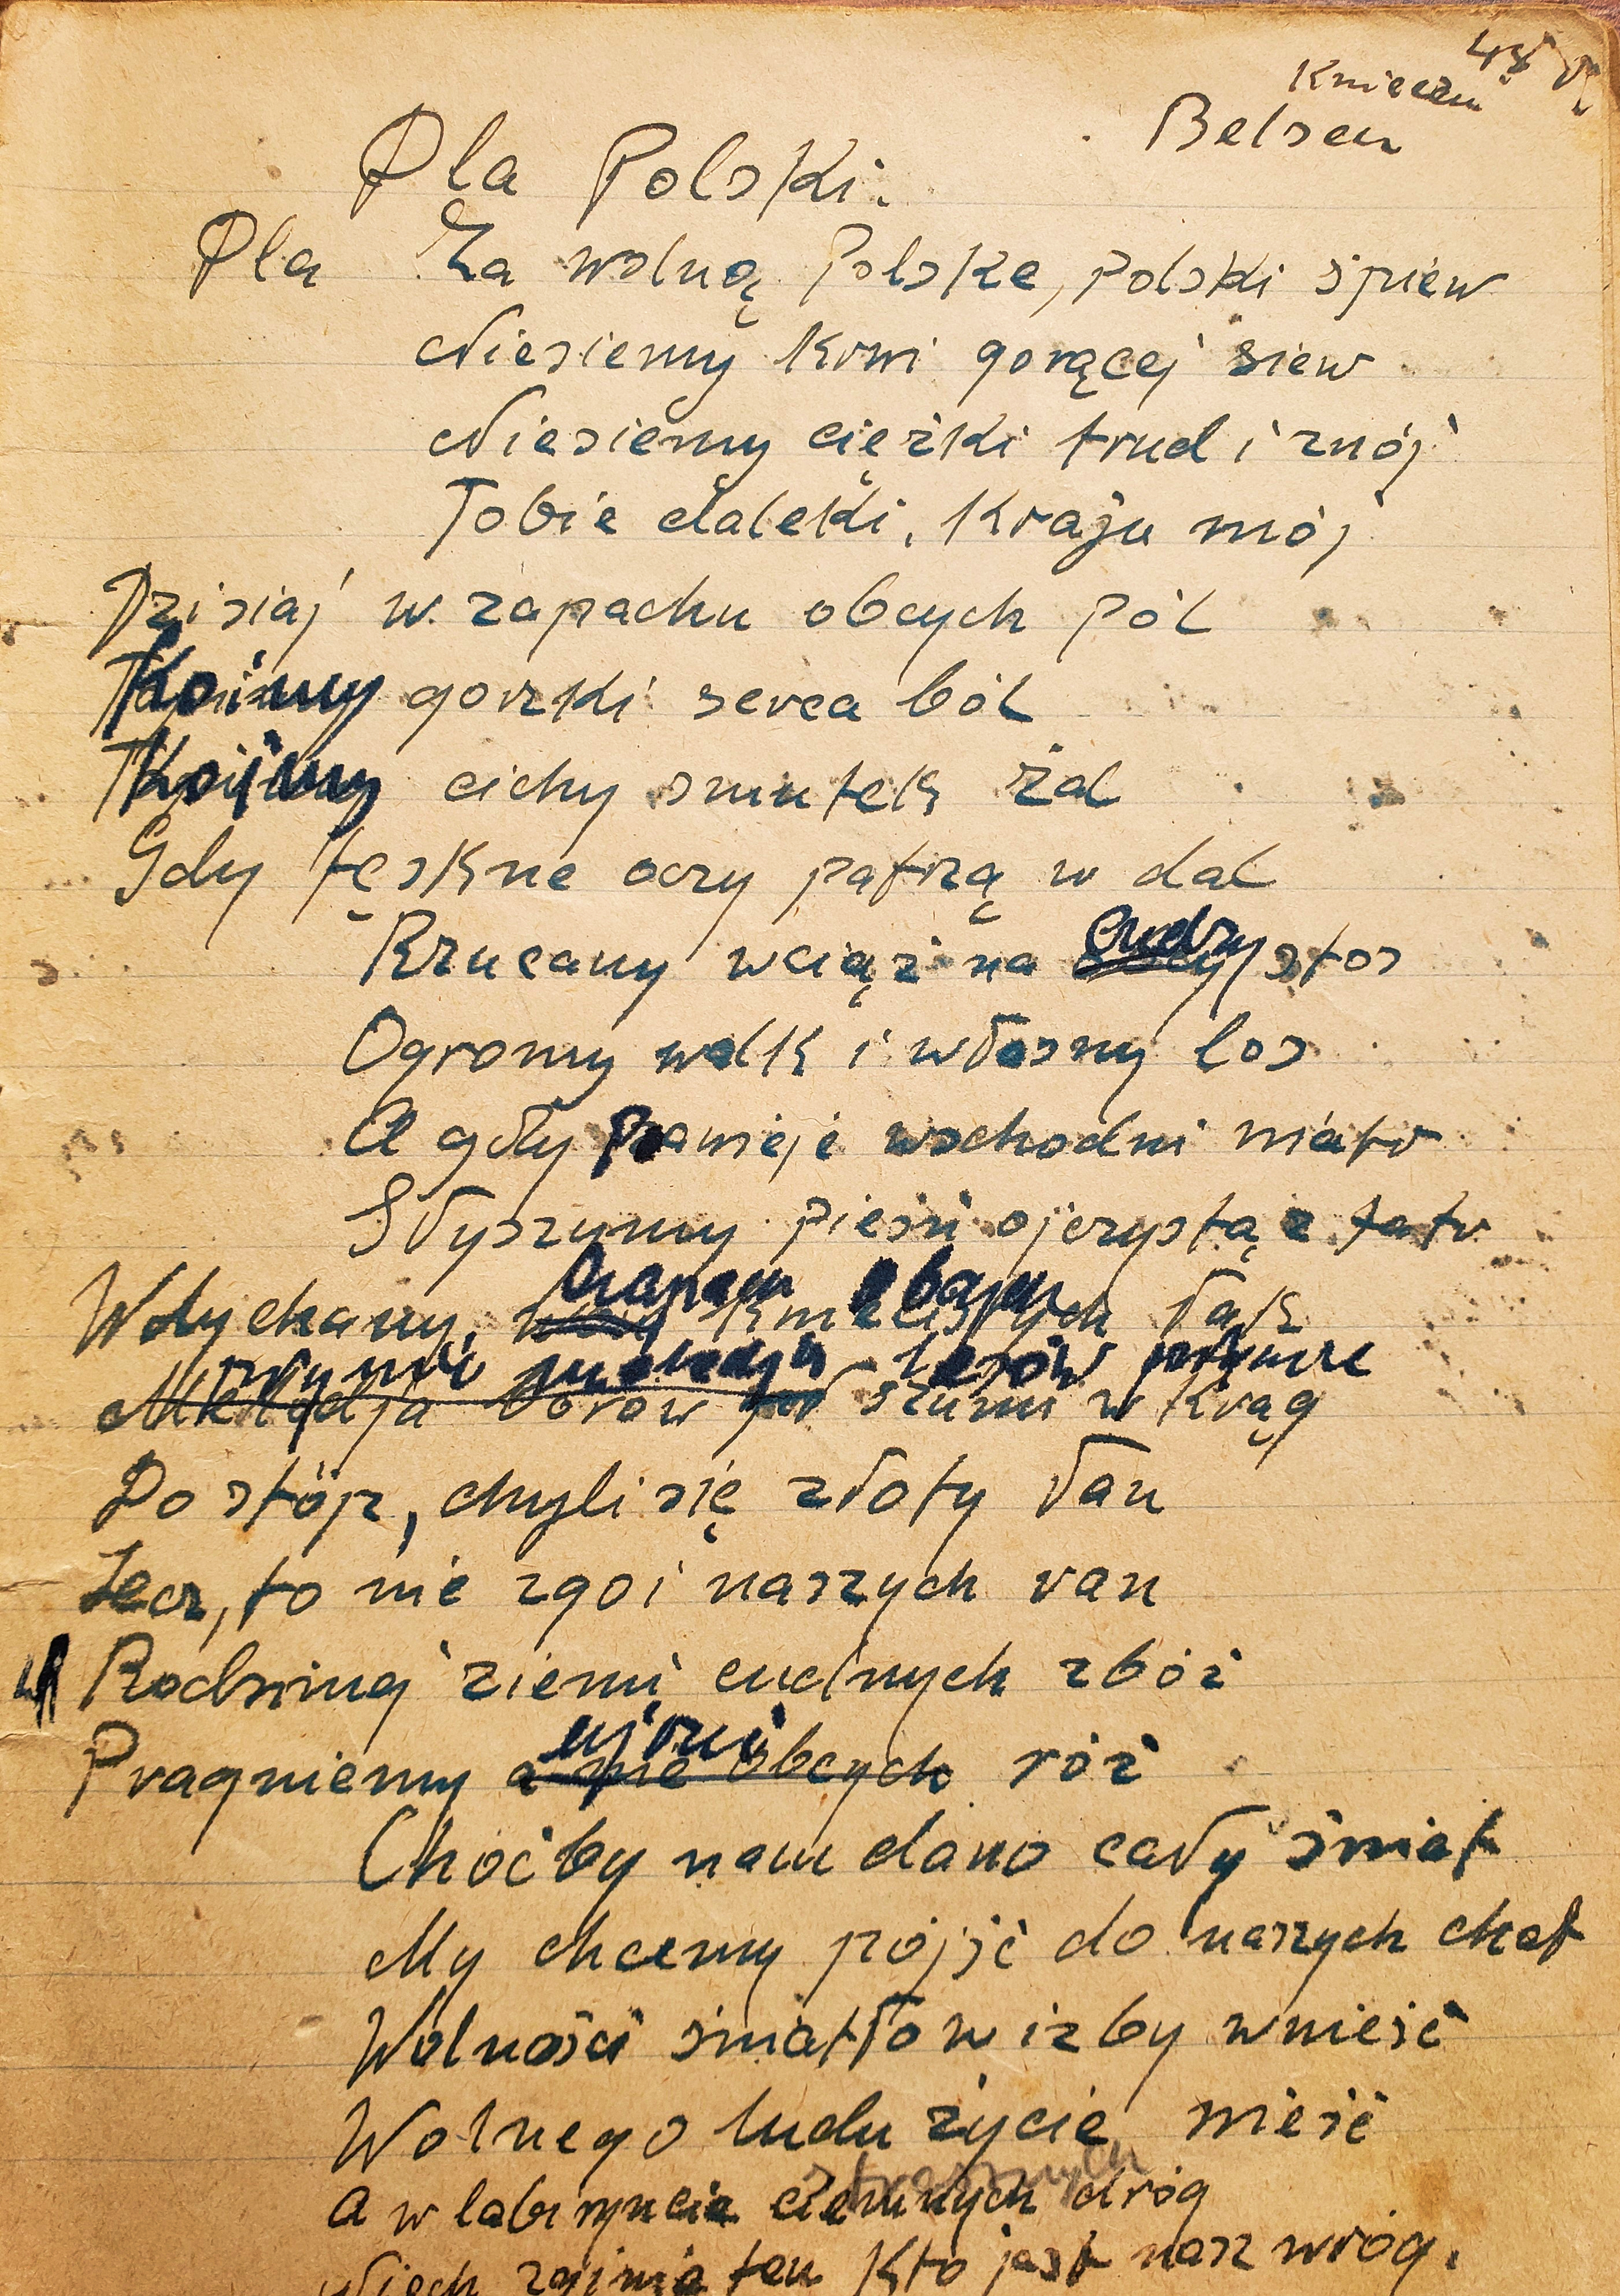 Kwiecień 45 r
Belsen
Dla Polski.
Dla Za wolną Polskę, polski śpiew
Niesiemy krwi gorącej siew
Niesiemy ciężki trud i znój
Tobie daleki, kraju mój
Dzisiaj w zapachu obcych pól
Koimy gorzki serca ból
Koimy cichy smutek żal
Gdy tęskne oczy patrzą w dal
Rzucamy wciąż na cudzy stos
Ogromy walk i własny los
A gdy powieje wschodni wiatr
Słyszymy pieśń ojczystą z tatr
Wdychamy, kwiecistych łąk
obcych
melodją lasów
Melodja borów szumi w krąg
Do stóp, chyli się złoty łan
Lecz, to nie zgoi naszych ran
Rodzinnej ziemi cudnych zbóż
ujrzeć
Pragniemy a nie obcych róż
Choćby nam dano cały świat
My chcemy pójść do naszych chat
Wolności światło w izby wnieść
Wolnego ludu życie wieść
strasznych
A w labiryncie ciemnych dróg
Niech zginie ten kto jest nasz wróg.